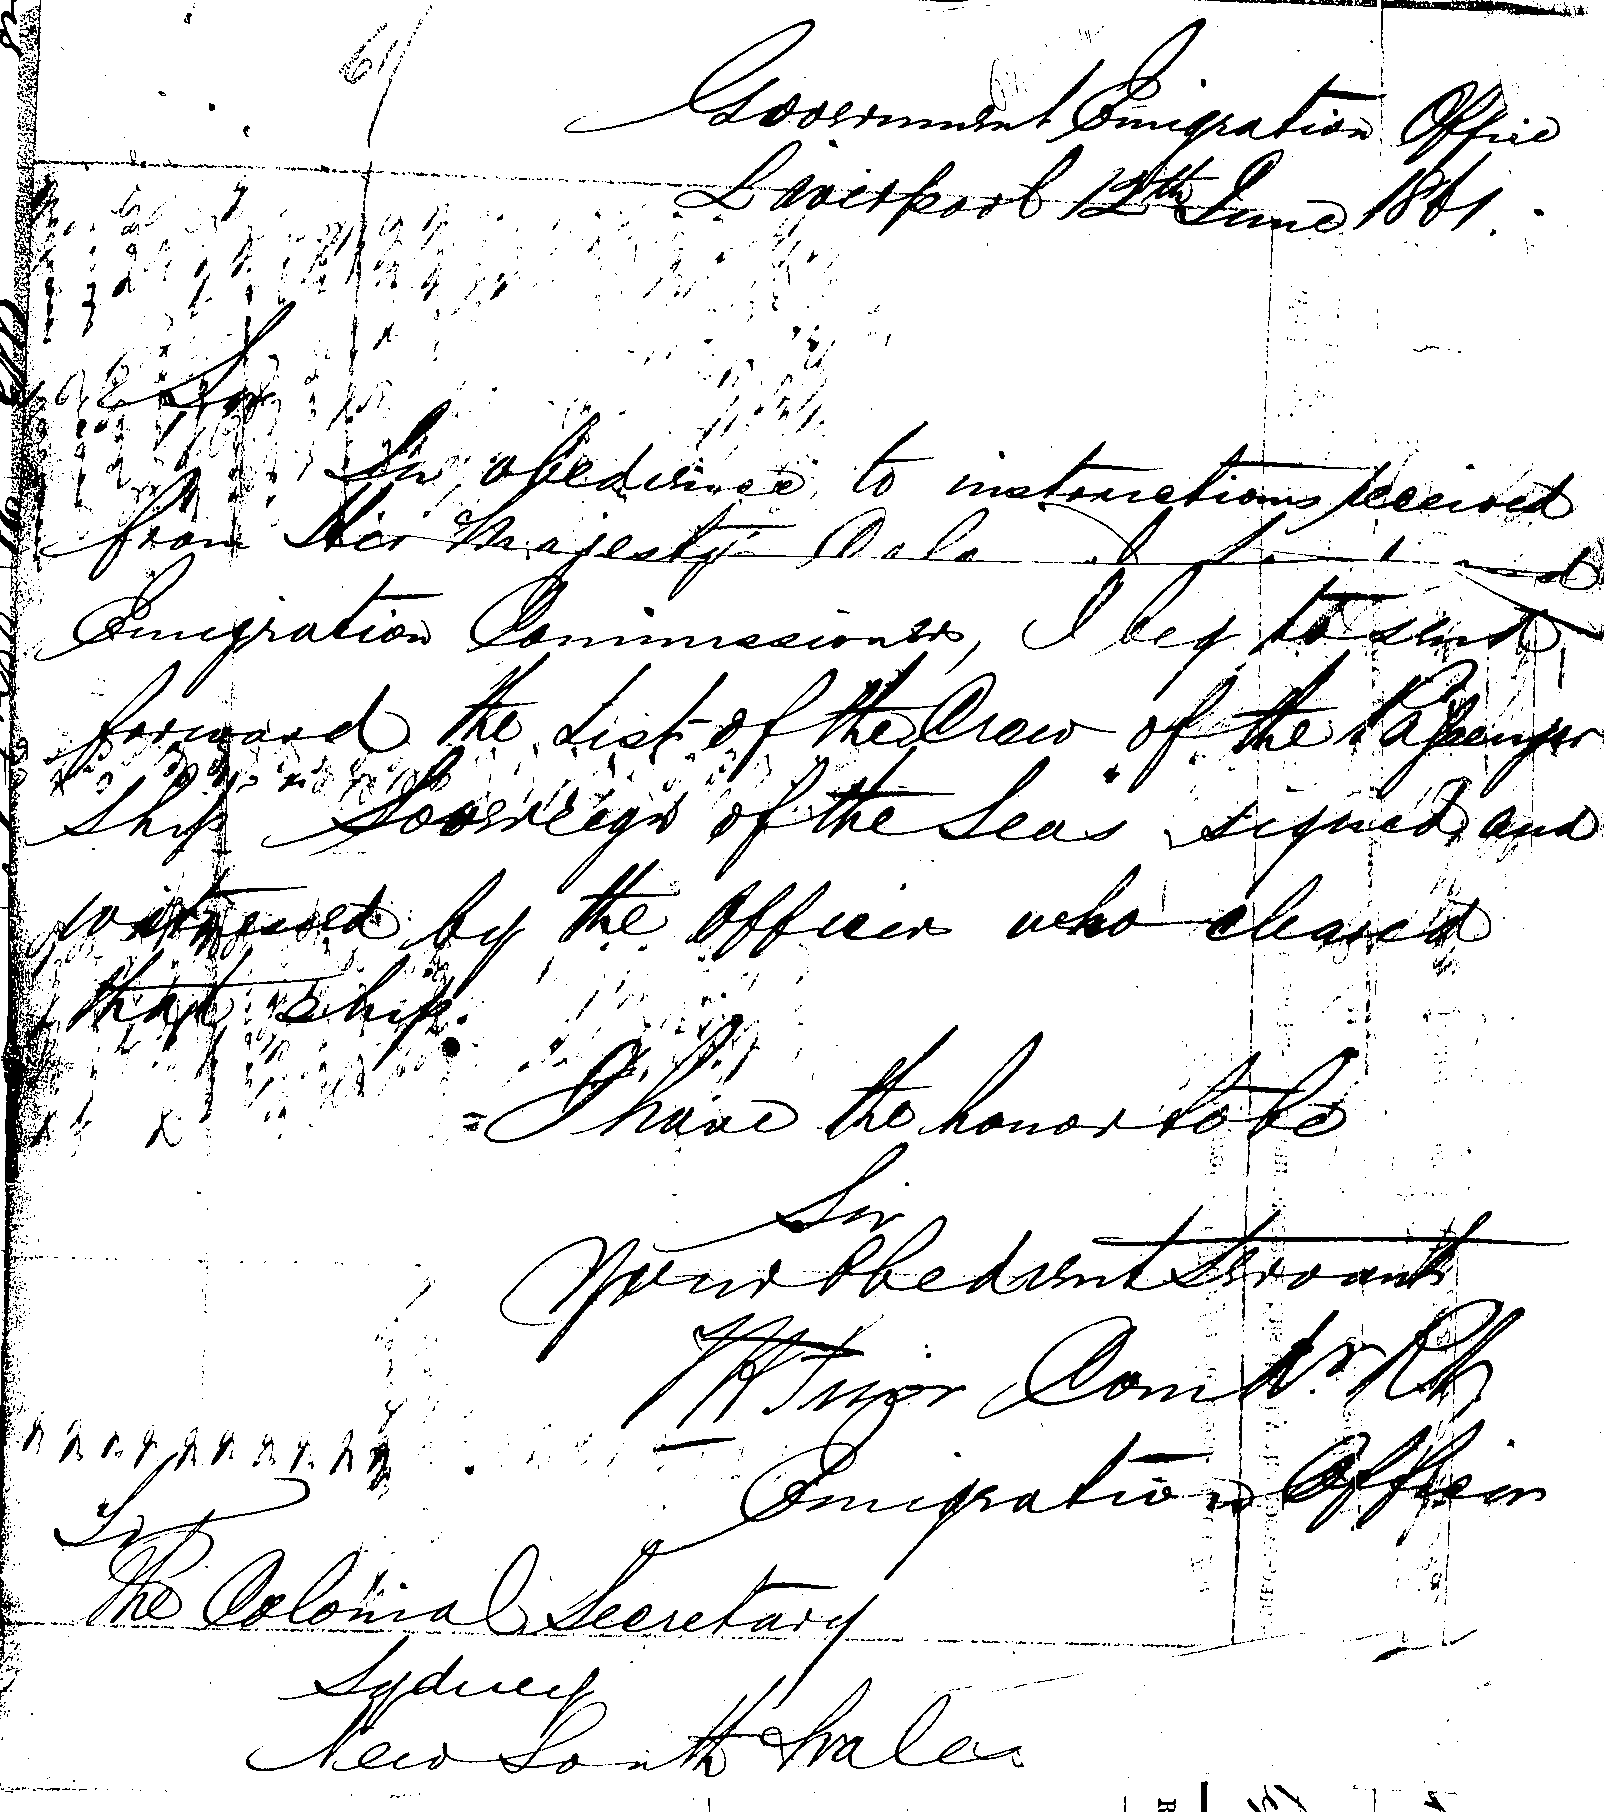 61/
Government Emigration Office
Liverpool 12th June 1861.
Sir
In obedience to instructions received
from Her Majesty
Emigration Commissioners, I beg to send
forward the List of the Crew of the Passenger
Ship Sovereign of the Seas" signed and
witnessed by the Officer who cleared
that ship.
I have the honor to be
Sir
Your Obedient Servant
Comdr. RN
Emigration Officer
To
The Colonial Secretary
Sydney
New South Wales